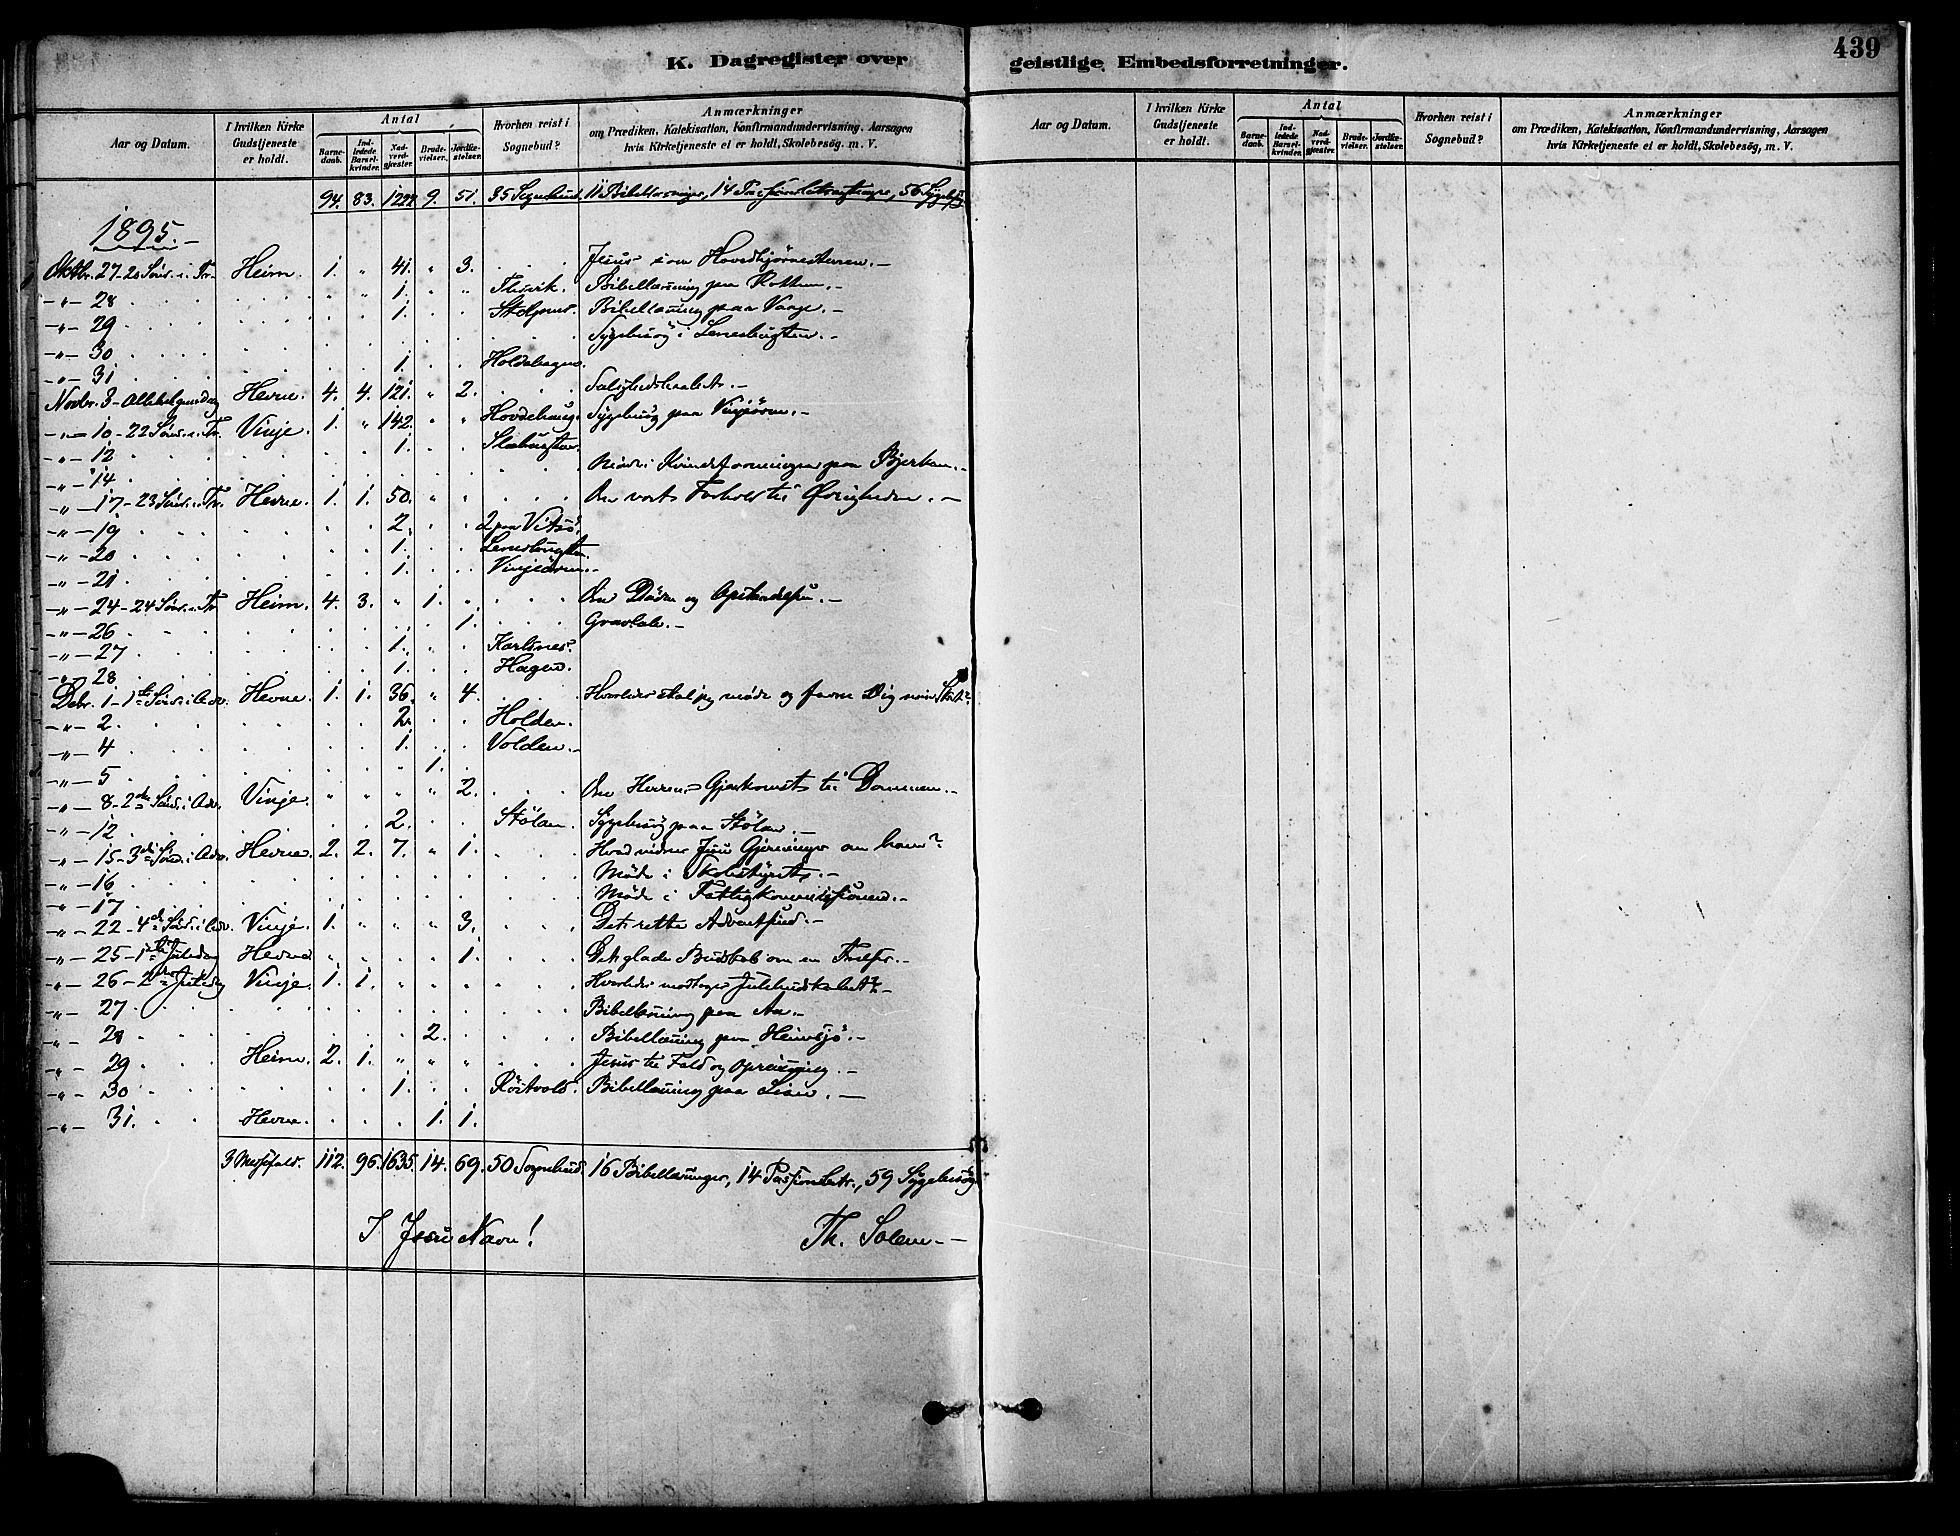 K. Dagregister over geistlige Embedsforretninger.
439
Aar og Datum. I hvilken Kirke Gudstjeneste er holdt. Antal Barnedaab. Indledede Barselkvinder. Nadverdgjester. Brudevielser. Jordfæstelser. Hvorhen reist i Sognebud? Anmærkninger om Prædiken, Katekisation, Konfirmandundervisning, Aarsagen hvis Kirketjeneste ei er holdt, Skolebesøg, m. V.
Aar og Datum. I hvilken Kirke Gudstjeneste er holdt. Antal Barnedaab. Indledede Barselkvinder. Nadverdgjester. Brudevielser. Jordfæstelser. Hvorhen reist i Sognebud? Anmærkninger om Prædiken, Katekisation, Konfirmandundervisning, Aarsagen hvis Kirketjeneste ei er holdt, Skolebesøg, m. V.
94. 83. 9. 51. 35 Sognebud. 11 Bibellæsninger, 14 56 Sygebesøg
1895.-
Oktbr. 27- 20 Sönd. e. Tr. Heim. 1. " 41. " 3. Jesus som Hovedhjörnestenen.-
-"- 28 " " 1. " " Bibellæsning paa Rottem.-
-"- 29 1. Bibellæsning paa Vaage.-
-"- 30 Sygebesög i Lenesbugten.-
-"- 31 1.
Novbr. 3- Allehelgensdag Hevne. 4. 4. 121. " 2.
-"- 10- 22 Sönd. e. Tr. Vinje. 1. " 142. " " Hovdehaug. Sygebesög paa Vinjeören.-
-"- 12 1.
-"- 14 Möde i Kvindeforeningen paa Bjerken.-
-"- 17- 23 Sönd. e. Tr. Hevne. 1. 1. 50. " " Om vort Forhold til Övrigheden.-
-"- 19 2. 2 paa Vitsö.
-"- 20 1. Lenesbugten.
-"- 21 1. Vinjeören.-
-"- 24- 24 Sönd. e. Tr. Heim. 4. 3. " 1. " Om Döden og Opstandelsen.-
-"- 26 1. Gravtale.-
-"- 27 1. Karlsnes.
-"- 28 1. Hagen.
Debr. 1- 1ste Sönd. i Adv. Hevne. 1. 1. 36. " 4. Hvorledes skal jeg möde og favne Dig min Skat?
-"- 2. 2. Holden.
-"- 4 1. Volden.-
-"- 5 " 1.
-"- 8- 2den Sönd. i Adv. Vinje. " " " " 2. Om Herrens Gjenkomst til Dommen.-
-"- 12 2. Stölan. Sygebesög paa Stölan.-
-"- 15- 3die Sönd. i Adv. Hevne. 2. 2. 7. " 1. Hvad vidner Jesu Gjerninger om ham?
-"- 16 Möde i Skolestyret.-
-"- 17 Möde i Fattigkommissionen.-
-"- 22- 4de Sönd. i Adv. Vinje. 1. " " " 3. Det rette Adventsind.-
-"- 25- 1ste Juledag Hevne " " " " 1. Det glade Budskab om en Frelser.-
-"- 26- 2den Juledag Vinje. 1. 1. " " " Hvorledes modtages Julebudskabet?-
-"- 27 Bibellæsning paa Aa.-
-"- 28 2. Bibellæsning paa Heimsjö.-
-"- 29 Heim. 2. 1. " " " Jesus til Fald og Opreisning.-
-"- 30 1. Röitvold. Bibellæsning paa Lien.-
-"- 31. Hevne. 1. 1.
3 Messefald. 112. 96. 1635. 14. 69. 50 Sognebud. 16 Bibellæsninger, 14 Passionsbetr., 59 Sygebesög
I Jesu Navn! Th. Solem.-